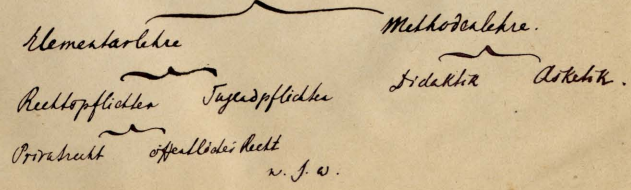 Elementarlehre Methodenlehre.
Rechtspflichten Tugendpflichten Didaktik Asketik.
Privatrecht öffentliches Recht
u. s. w.